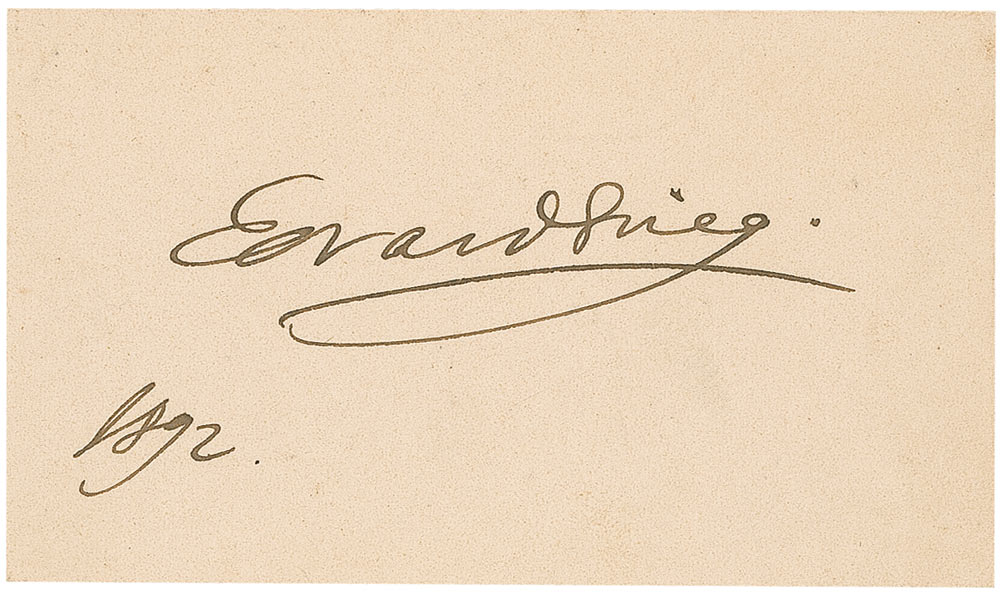 Edvard Grieg.
1892.